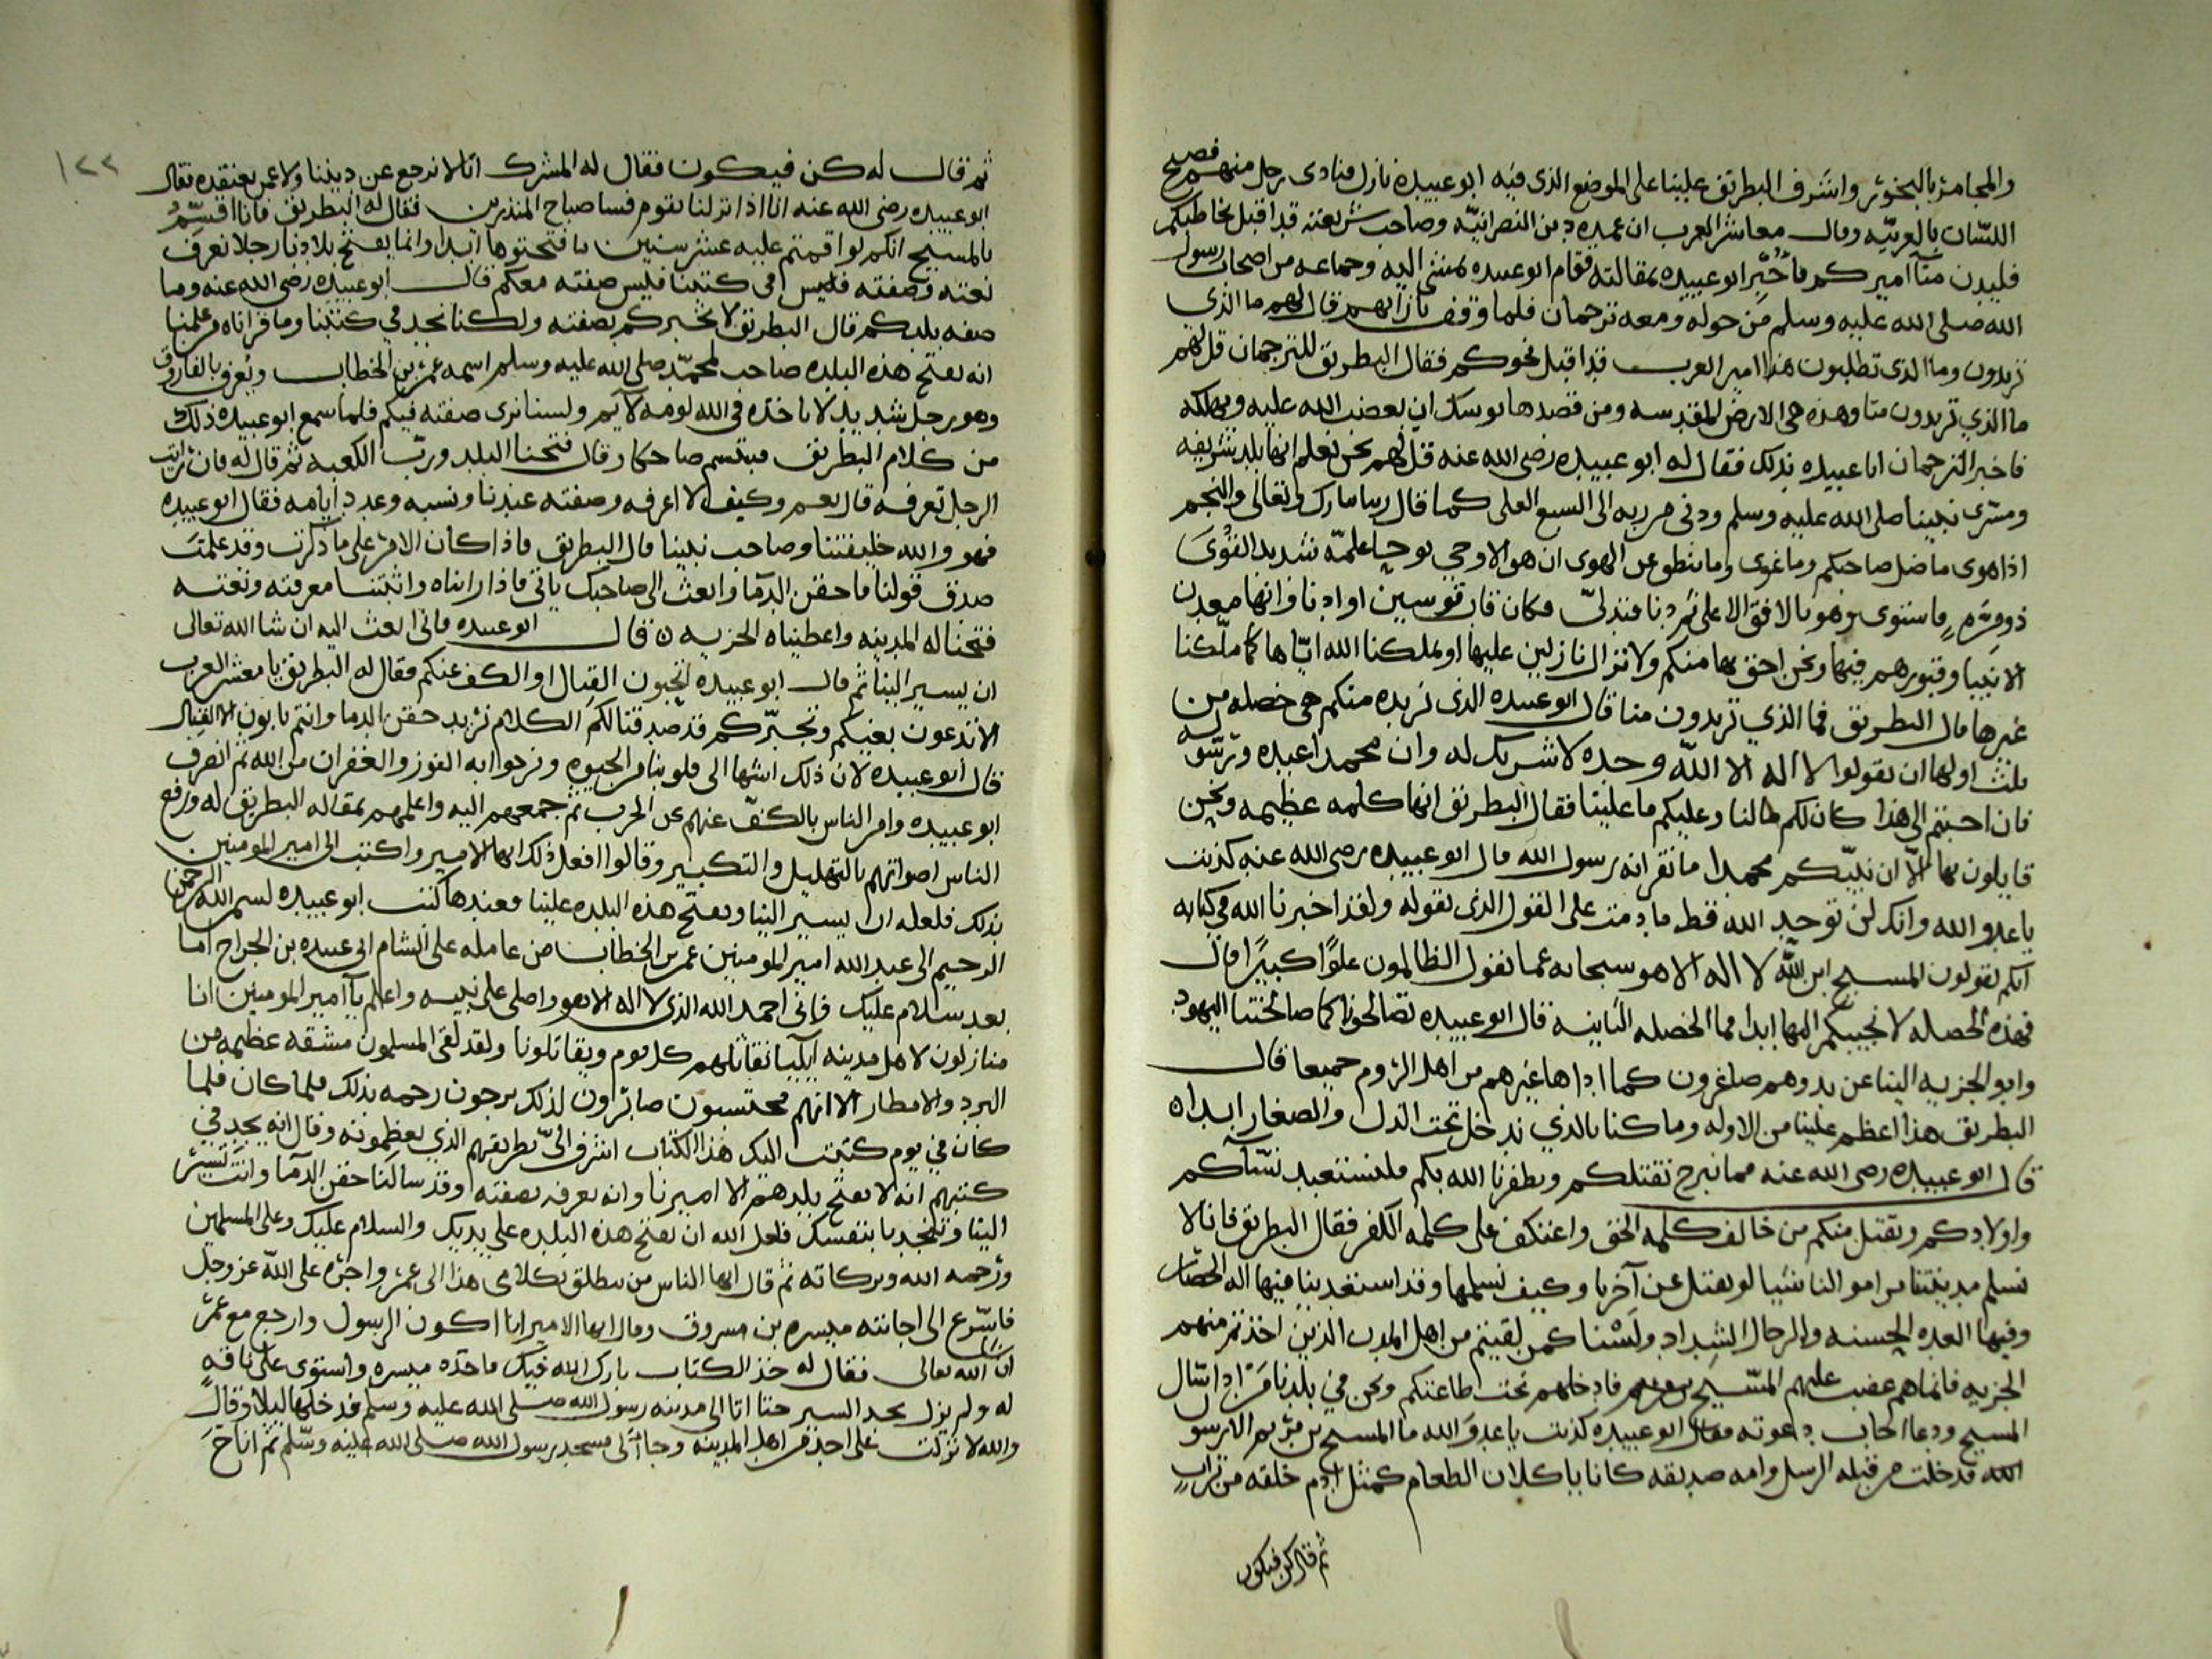 والمجامر بالبخور واشرف البطريق علينا على الموضع الذى فيه ابو عبيده نازل فنادى رجل منهم فصيح
اللسان بالعربيه وقال معاشر العرب ان عميد دين النصرانيه وصاحب شريعته قد اقبل يخاطبكم
فليدن منا اميركم فاخبر ابو عبيده بمقالته فقام ابو عبيده يمشى اليه وجماعه من اصحاب رسول
الله صلى الله عليه وسلم من حوله ومعه ترجمان فلما وقف بازايهم قال لهم ما الذي
تريدون وما الذى تطلبون هذا امير العرب قد اقبل نحوكم فقال البطريق للترجمان قل لهم
ما الذي تريدون منا وهذه هى الارض المقدسه ومن قصدها يوشك ان يغضب الله عليه ويهلكه
فاخبر الترجمان ابا عبيده بذلك فقال له ابو عبيده رضى الله عنه قل لهم نحن نعلم انها بلد شريفه
ومسرى نبينا صلى الله عليه وسلم ودنى من ربه الى السبع العلى كما قال ربنا تبارك وتعالى والنجم
اذا هوى ما ضل صاحبكم وما غوى وما ينطق عن الهوى ان هو الا وحي يوحى علمه شديد القوى
ذو مره فاستوى وهو بالافق الاعلى ثم دنا فتدلى فكان قاب قوسين او ادنا وانها معدن
الانبيا وقبورهم فيها ونحن احق بها منكم ولا نزال نازلين عليها او يملكنا الله اياها كما ملكنا
غيرها قال البطريق فما الذي تريدون منا قال ابو عبيده الذى نريده منكم هى خصله من
ثلث اولها ان تقولوا لا اله الا الله وحده لا شريك له وان محمدا عبده ورسوله
فان اجبتم الى هذا كان لكم مالنا وعليكم ما علينا فقال البطريق انها كلمه عظيمه ونحن
قايلون بها الا ان نبيكم محمدا ما نقر انه رسول الله قال ابو عبيده رضى الله عنه كذبت
يا عدو الله وانك لن توحد الله قط ما دمت على القول الذى تقوله ولقد اخبرنا الله في كتابه
انكم تقولون المسيح ابن الله لا اله الا هو سبحانه عما تقول الظالمون علوا كبيرا قال
فهذه الخصله لا نجيبكم اليها ابدا فما الخصله الثانيه قال ابو عبيده تصالحونا كما صالحتنا اليهود
وادوا الجزيه الينا عن يد وهم صاغرون كما اداها غيرهم من اهل الروم جميعا قال
البطريق هذا اعظم علينا من الاوله وما كنا بالذي ندخل تحت الذل والصغار ابدا
قال ابو عبيده رضى الله عنه فما نبرح نقتلكم ويظفرنا الله بكم فنستعبد نسآكم
واولادكم ونقتل منكم من خالف كلمه الحق واعتكف على كلمه الكفر فقال البطريق فانا لا
نسلم مدينتنا ولو نقتل عن آخرنا وكيف نسلمها وقد استعدينا فيها اله الحصار
وفيها العده الحسنه والرجال الشداد ولسنا كمن لقيتم من اهل المدن الذين اخذتم منهم
الجزيه فانما هم غضب عليهم المسيح فادخلهم تحت طاعتكم ونحن في بلدنا من اذا سال
المسيح ودعا اجاب دعوته فقال ابو عبيده كذبت يا عدو الله ما المسيح بن مريم الا رسول
الله قد خلت من قبله الرسل وامه صديقه كانا ياكلان الطعام كمثل ادم خلقه من تراب
ثم قال كن فيكون
١٢٢
ثم قال له كن فيكون فقال له المشرك انا لا نرجع عن ديننا ولا عن نعتقده فقال
ابو عبيده رضى الله عنه انا اذا نزلنا بقوم فسا صباح المنذرين فقال له البطريق فانا اقسم
بالمسيح انكم لو اقمتم عليه عشر سنين ما فتحتوها ابدا وانما يفتح بلادنا رجلا نعرف
نعته وصفته في كتبنا فليس صفته معكم قال ابو عبيده رضى الله عنه وما
صفه بلدكم قال البطريق لا نخبركم بصفته ولكنا نجد في كتبنا وما قراناه من علمنا
انه يفتح هذه البلده صاحب لمحمد صلى الله عليه وسلم اسمه عمر بن الخطاب ويعرف بالفاروق
وهو رجل شديد لا ياخذه في الله لومه لايم ولسنا نرى صفته فيكم فلما سمع ابو عبيده ذلك
من كلام البطريق تبسم ضاحكا وقال فتحنا البلد ورب الكعبه ثم قال له فان رايت
الرجل تعرفه قال نعم وكيف لا اعرفه وصفته عندنا ونسبه وعدد ايامه فقال ابو عبيده
فهو والله خليفتنا وصاحب نبينا قال البطريق فاذا كان الامر على ما ذكرت وقد علمت
صدق قولنا فاحقن الدما وابعث الى صاحبك ياتي فاذا رايناه واثبتنا معرفته ونعته
فتحنا له المدينه واعطيناه الجزيه قال ابو عبيده فانى ابعث اليه ان شا الله تعالى
ان يسير الينا ثم قال ابو عبيده اتحبون القتال او الكف عنكم فقال له البطريق يا معشر العرب
الا تدعون بغيكم وتجبركم قد صدقنا لكم الكلام نريد حقن الدما وانتم تابون الا القتال
قال ابو عبيده لان ذلك اشها الى قلوبنا من الحيوه ونرجوا به الفوز والغفران من الله ثم انصرف
ابو عبيده وامر الناس بالكف عنهم عن الحرب ثم جمعهم اليه واعلمهم بمقاله البطريق له ورفع
الناس اصواتهم بالتهليل والتكبير وقالوا افعل ذلك ايها الامير واكتب الى امير المومنين
بذلك فلعله ان يسير الينا ويفتح هذه البلده علينا فعندها كتب ابو عبيده بسم الله الرحمن
الرحيم الى عبد الله امير المومنين عمر بن الخطاب من عامله على الشام ابى عبيده بن الجراح اما
بعد سلام عليك فانى احمد الله الذى لا اله الا هو واصلى على نبيه واعلم يا امير المومنين انا
منازلون لاهل مدينه ايليا نقاتلهم كل يوم ويقاتلونا ولقد لقى المسلمون مشقه عظيمه من
البرد والامطار الا انهم محتسبون صابرون لذلك يرجون رحمه بذلك فلما كان
كان في يوم كتبت اليك هذا الكتاب اشرف الى بطريقهم الذي يعظمونه وقال انه يجد في
كتبهم انه لا يفتح بلدهم الا اميرنا وانه يعرفه بصفته وقد سالنا حقن الدما وانت تسير
الينا وتنجدنا بنفسك فلعل الله ان يفتح هذه البلده على يديك والسلام عليك وعلى المسلمين
ورحمه الله وبركاته ثم قال ايها الناس من ينطلق بكلامى هذا الى عمر واجره على الله عز وجل
فاسرع الى اجابته ميسره بن مسروق وقال ايها الامير انا اكون الرسول وارجع مع عمر
ان شا الله تعالى فقال له خذ الكتاب بارك الله فيك فاخذه ميسره واستوى على ناقه
له ولم يزل يجد السير حتا اتا الى مدينه رسول الله صلى الله عليه وسلم فدخلها ليلا وقال
والله لا نزلت على احد من اهل المدينه وجا الى مسجد رسول الله صلى الله عليه وسلم ثم اناخ